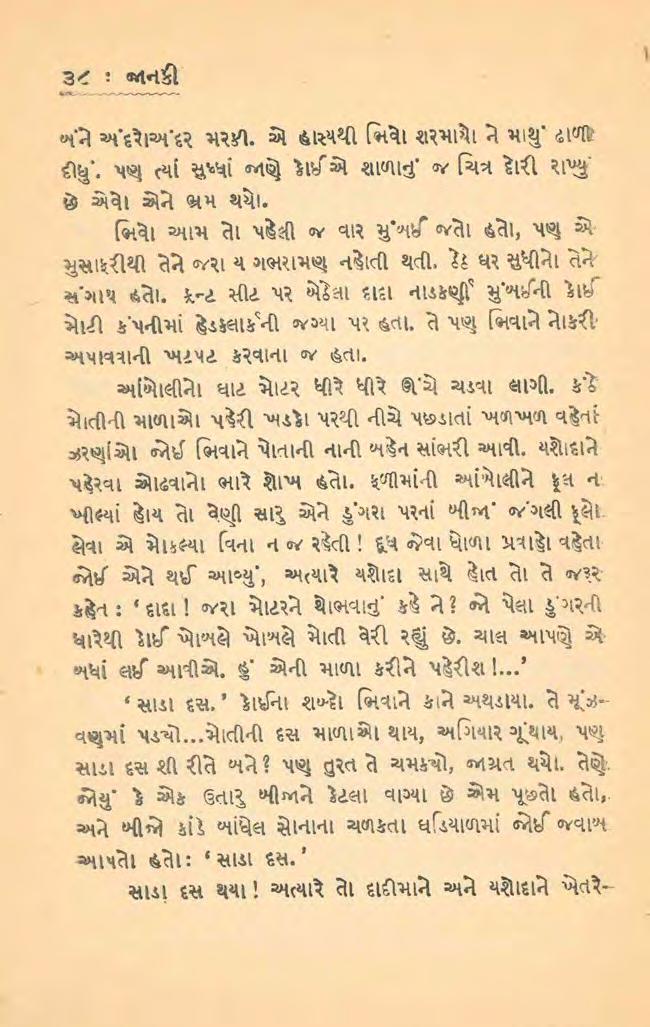 ૩૮ : જાનકી
બંને અંદરોઅંદર મરકી. એ હાસ્યથી ભિવો શરમાયો ને માથું ઢાળી
દીધું. પણ ત્યાં સુધ્ધાં જાણે કોઈએ શાળાનું જ ચિત્ર દોરી રાખ્યું
છે એવો એને ભ્રમ થયો.
ભિવો આમ તો પહેલી જ વાર મુંબઈ જતો હતો, પણ એ
મુસાફરીથી તેને જરા ય ગભરામણ નહોતી થતી. ઠેઠ ઘર સુધીનો તેને
સંગાથ હતો. ફ્રન્ટ સીટ પર બેઠેલા દાદા નાડકર્ણી મુંબઈની કોઈ
મોટી કંપનીમાં હેડકલાર્કની જગ્યા પર હતા. તે પણ ભિવાને નોકરી
અપાવવાની ખટપટ કરવાના જ હતા.
આંબોલીનો ઘાટ મોટર ધીરે ધીરે ઊંચે ચડવા લાગી. કંઠે
મોતીની માળાઓ પહેરી ખડકો પરથી નીચે પછડાતાં ખળખળ વહેતાં
ઝરણાંઓ જોઈ ભિવાને પોતાની નાની બહેન સાંભરી આવી. યશોદાને
પહેરવા ઓઢવાનો ભારે શોખ હતો. ફળીમાંની આંબોલીને ફૂલ ન
ખીલ્યાં હોય તો વેણી સારુ એને ડુંગરા પરનાં બીજાં જંગલી ફૂલો
લેવા એ મોકલ્યા વિના ન જ રહેતી! દૂધ જેવા ધોળા પ્રવાહો વહેતા
જોઈ એને થઈ આવ્યું, અત્યારે યશોદા સાથે હોત તો તે જરૂર
કહેત : ‘દાદા! જરા મોટરને થોભવાનું કહે ને? જો પેલા ડુંગરની
ધારેથી કોઈ ખોબલે ખોબલે મોતી વેરી રહ્યું છે. ચાલ આપણે એ
બધાં લઈ આવીએ. હું એની માળા કરીને પહેરીશ!...’
‘સાડા દસ.’ કોઈના શબ્દો ભિવાને કાને અથડાયા. તે મૂંઝ-
વણમાં પડ્યો...મોતીની દસ માળાઓ થાય, અગિયાર ગૂંથાય, પણ
સાડા દસ શી રીતે બને? પણ તુરત તે ચમક્યો, જાગ્રત થયો. તેણે
જોયું કે એક ઉતારુ બીજાને કેટલા વાગ્યા છે એમ પૂછતો હતો,
અને બીજો કાંડે બાંધેલ સોનાના ચળકતા ઘડિયાળમાં જોઈ જવાબ
આપતો હતો: ‘સાડા દસ.’
સાડા દસ થયા! અત્યારે તો દાદીમાને અને યશોદાને ખેતરે-